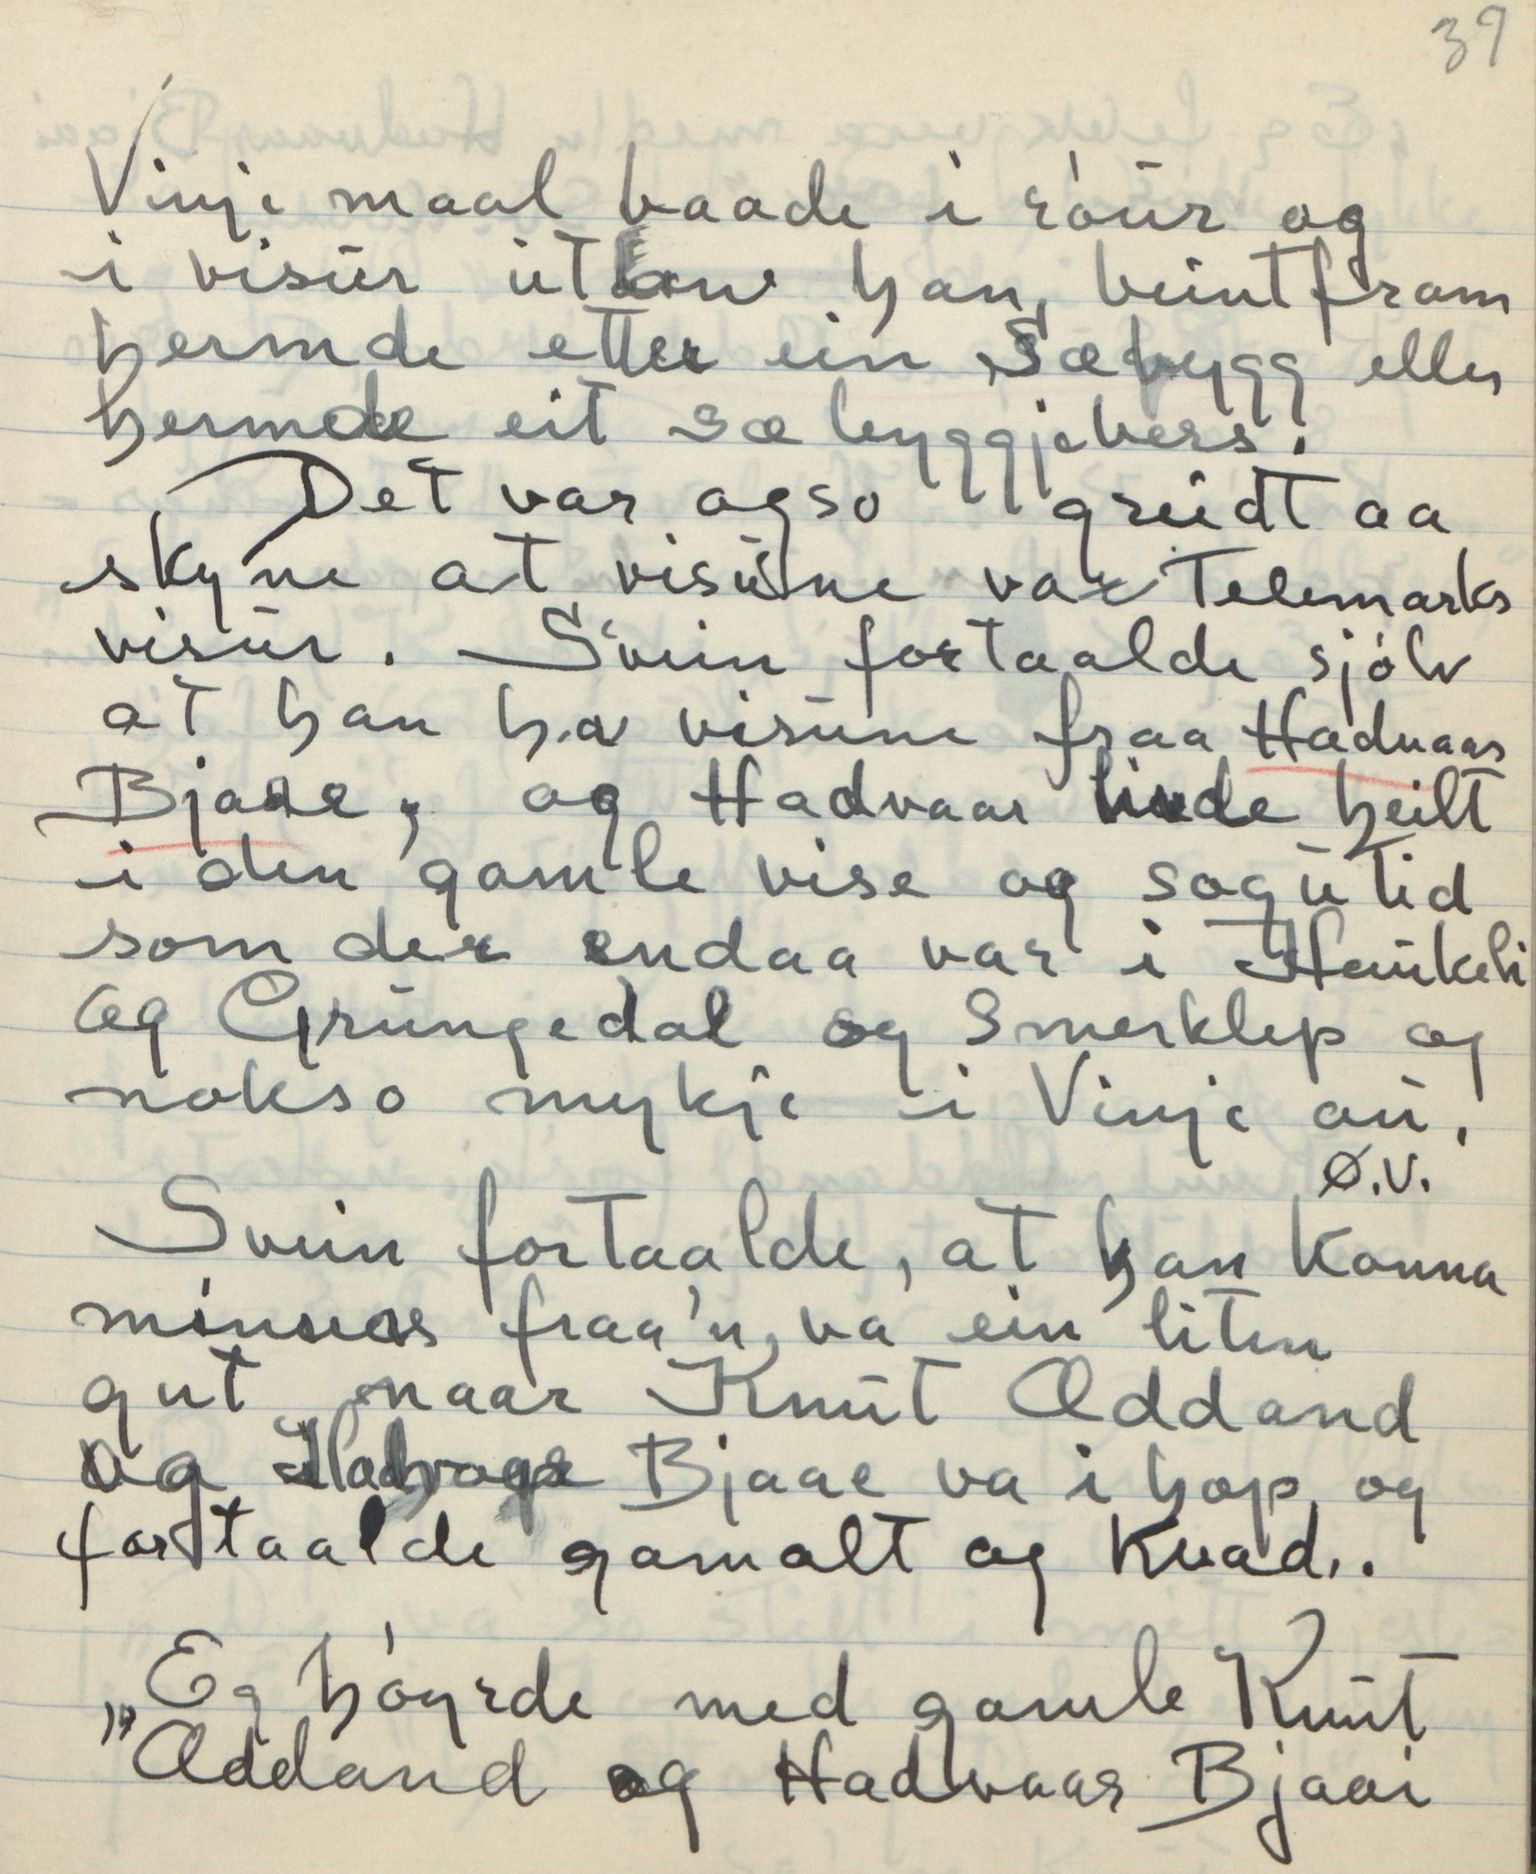 39
Vinje maal baade i róur og
i visur utan han beintfram
hermde etter ein Sæbygg eller
hermde eit sæbyggjevers.
Det var ogso greidt aa
skyne at visune var Telemarks
visur. Svein fortaalde sjólv
at han ha visune fraa Hadvaar
Bjaae, og Hadvaar livde heilt
i den gamle vise og sogutid
som der endaa var i Haukeli
og Grungedal og Smørklep og
nokso mykje i Vinje au.
Ø.V.
Svein fortaalde, at han konna
minnas fraa'n va ein liten
gut naar Knut Oddand
og Hadvaar Bjaae va i hop og
fortaalde gamalt og kvad..
„Eg hóyrde med gamle Knut
Oddand og Hadvaar Bjaai